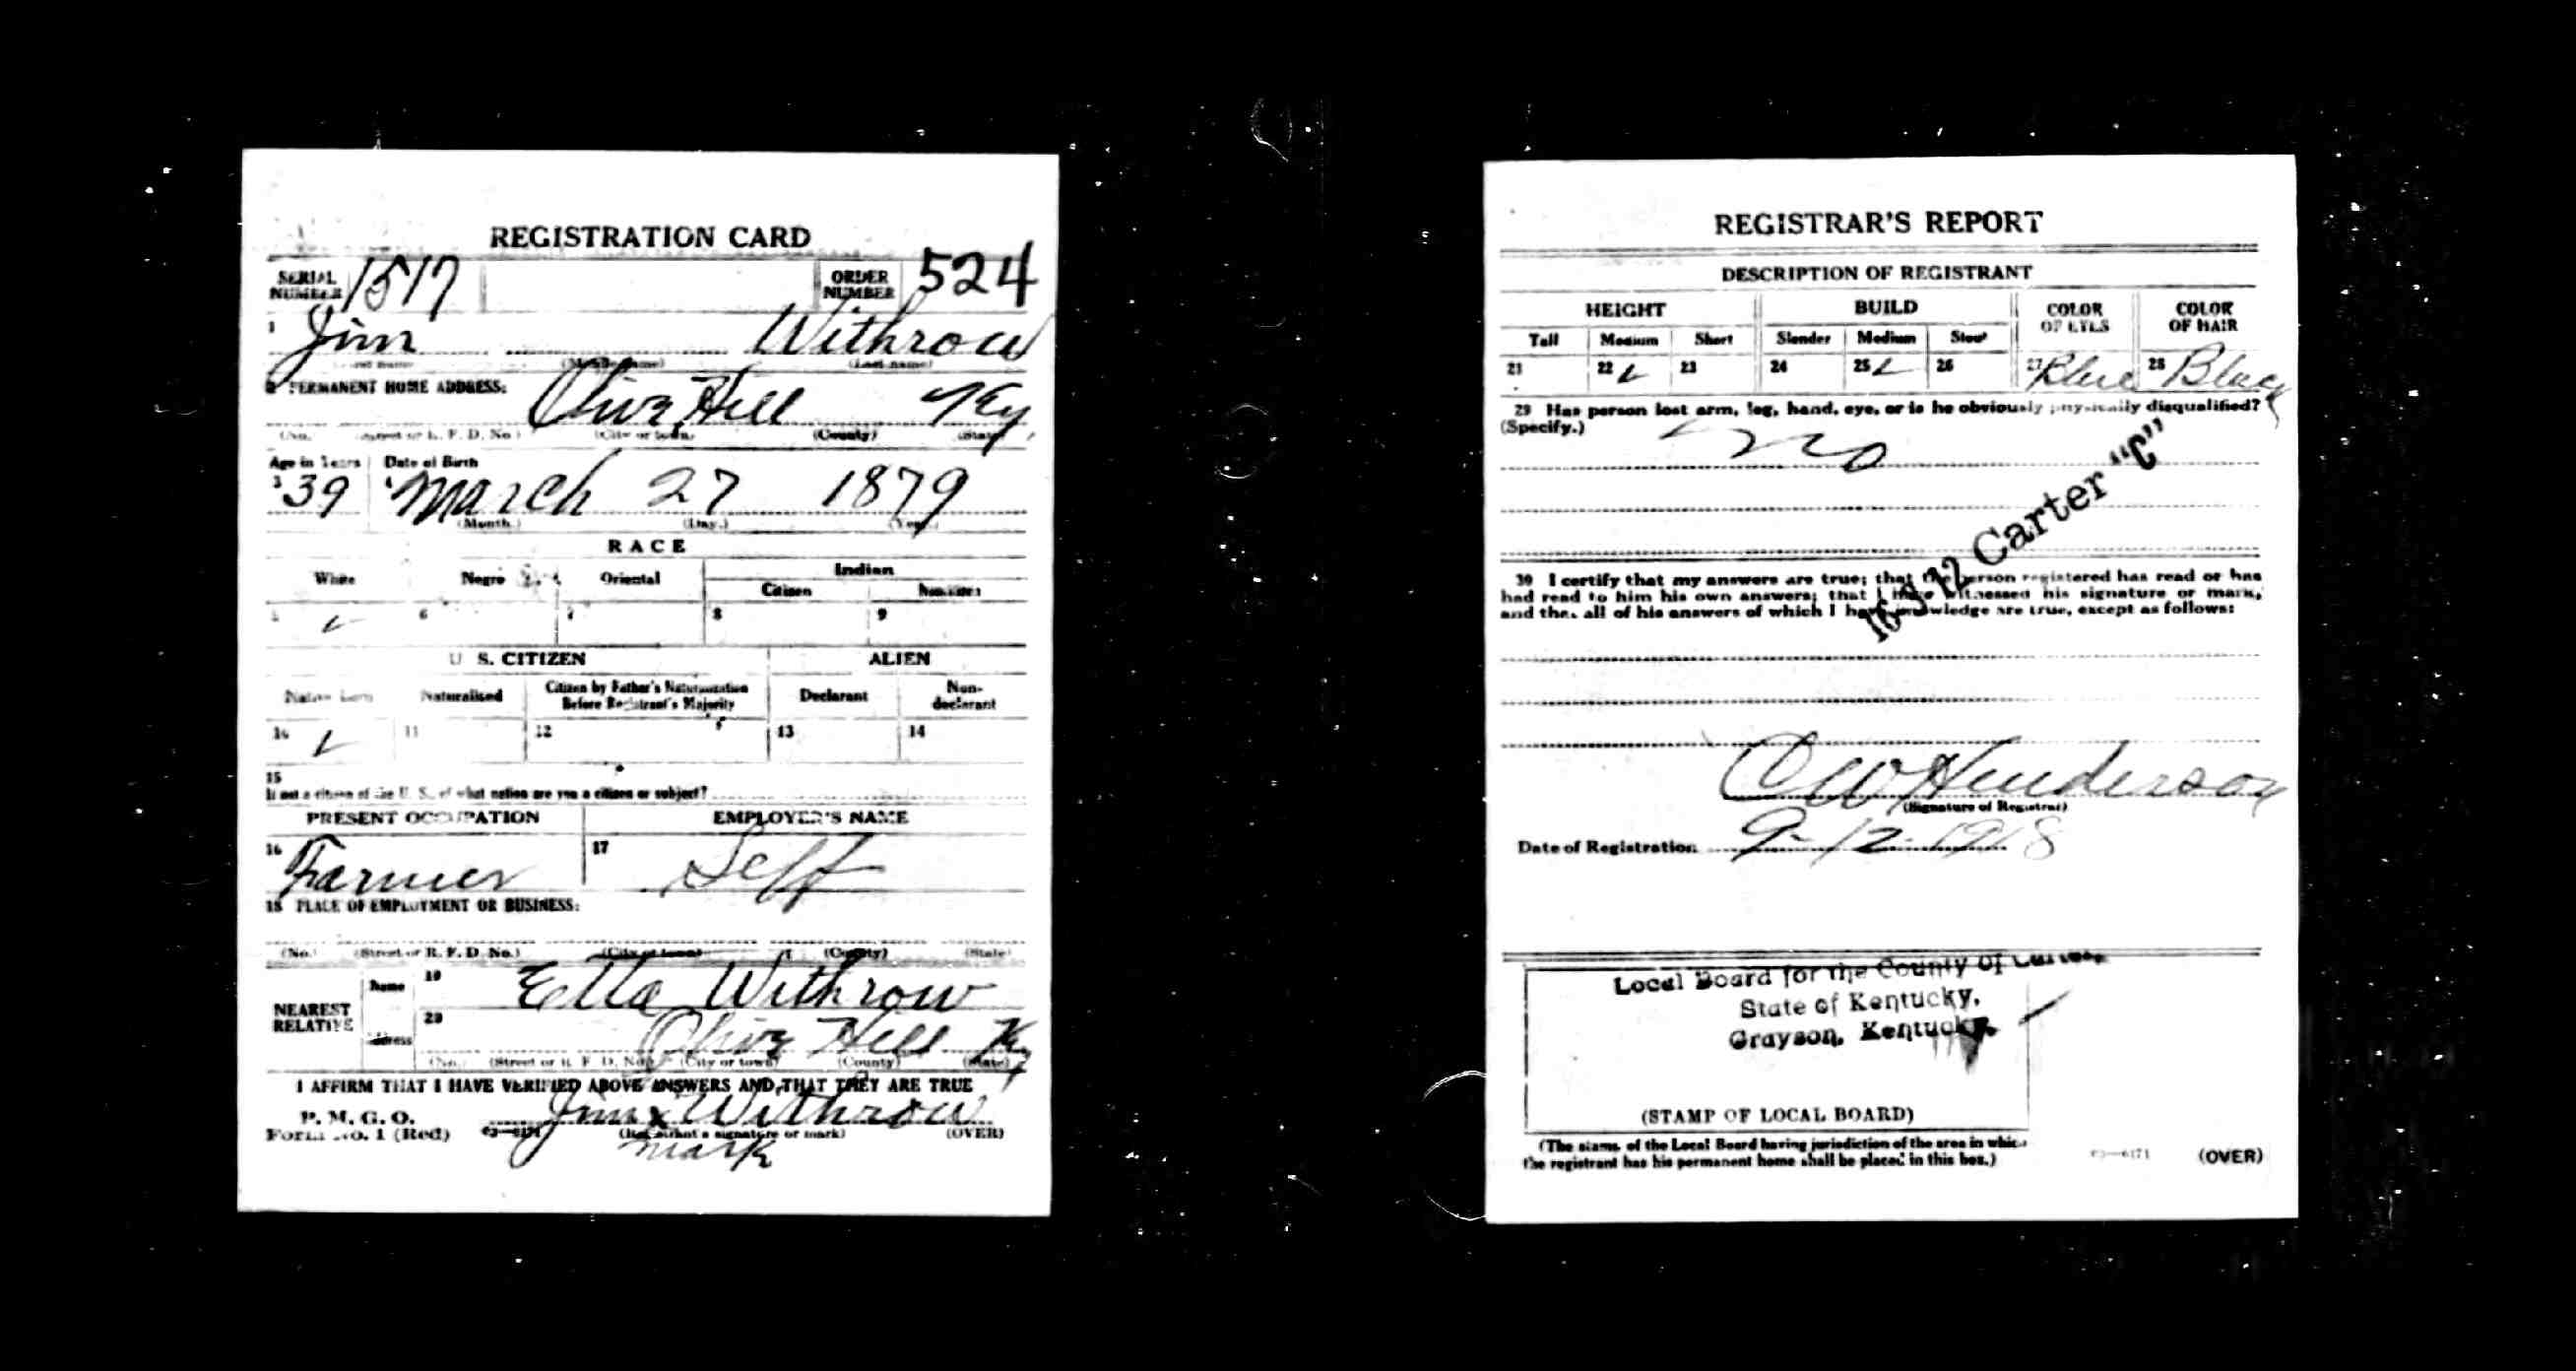 REGISTRATION CARD
SERIAL NUMBER 1517 ORDER NUMBER 524
1 Jim Withrow
(Middle name) (Last name)
2 PERMANENT HOME ADDRESS: Olive Hill Ky
(No.) (Street or R. F. D. No.) (City or town) (County) (State)
Age in Years Date of Birth
3 39 4 March 27 1879
(Month.) (Day.) (Year.)
RACE
White Negro Oriental Indian
Citizen Noncitizen
5 ✓ 6 7 8 9
U. S. CITIZEN ALIEN
Native Born Naturalized Citizen by Father's Naturalization Before Registrant's Majority Declarant Non-declarant
10 ✓ 11 12 13 14
15
If not a citizen of the U. S., of what nation are you a citizen or subject?
PRESENT OCCUPATION EMPLOYER'S NAME
16 Farmer 17 Self
18 PLACE OF EMPLOYMENT OR BUSINESS:
(No.) (Street or R. F. D. No.) (City or town) (County) (State)
NEAREST RELATIVE Name 19 Etta Withrow
Address 20 Olive Hill Ky
(No.) (Street or R. F. D. No.) (City or town) (County) (State)
I AFFIRM THAT I HAVE VERIFIED ABOVE ANSWERS AND THAT THEY ARE TRUE
P. M. G. O. Jim x Withrow
Form No. 1 (Red) 03—6171 (Registrant's signature or mark) (OVER)
mark
REGISTRAR'S REPORT
DESCRIPTION OF REGISTRANT
HEIGHT BUILD COLOR OF EYES COLOR OF HAIR
Tall Medium Short Slender Medium Stout
21 22 ✓ 23 24 25 ✓ 26 27 Blue 28 Black
29 Has person lost arm, leg, hand, eye, or is he obviously physically disqualified?
(Specify.)
no
16-3-12 Carter "C"
30 I certify that my answers are true; that the person registered has read or has
had read to him his own answers; that I have witnessed his signature or mark,
and that all of his answers of which I have knowledge are true, except as follows:
C W Henderson
(Signature of Registrar)
Date of Registration 9-12-1918
Local Board for the County of Carter
State of Kentucky,
Grayson, Kentucky.
(STAMP OF LOCAL BOARD)
(The stamp of the Local Board having jurisdiction of the area in which
the registrant has his permanent home shall be placed in this box.)
03—6171 (OVER)